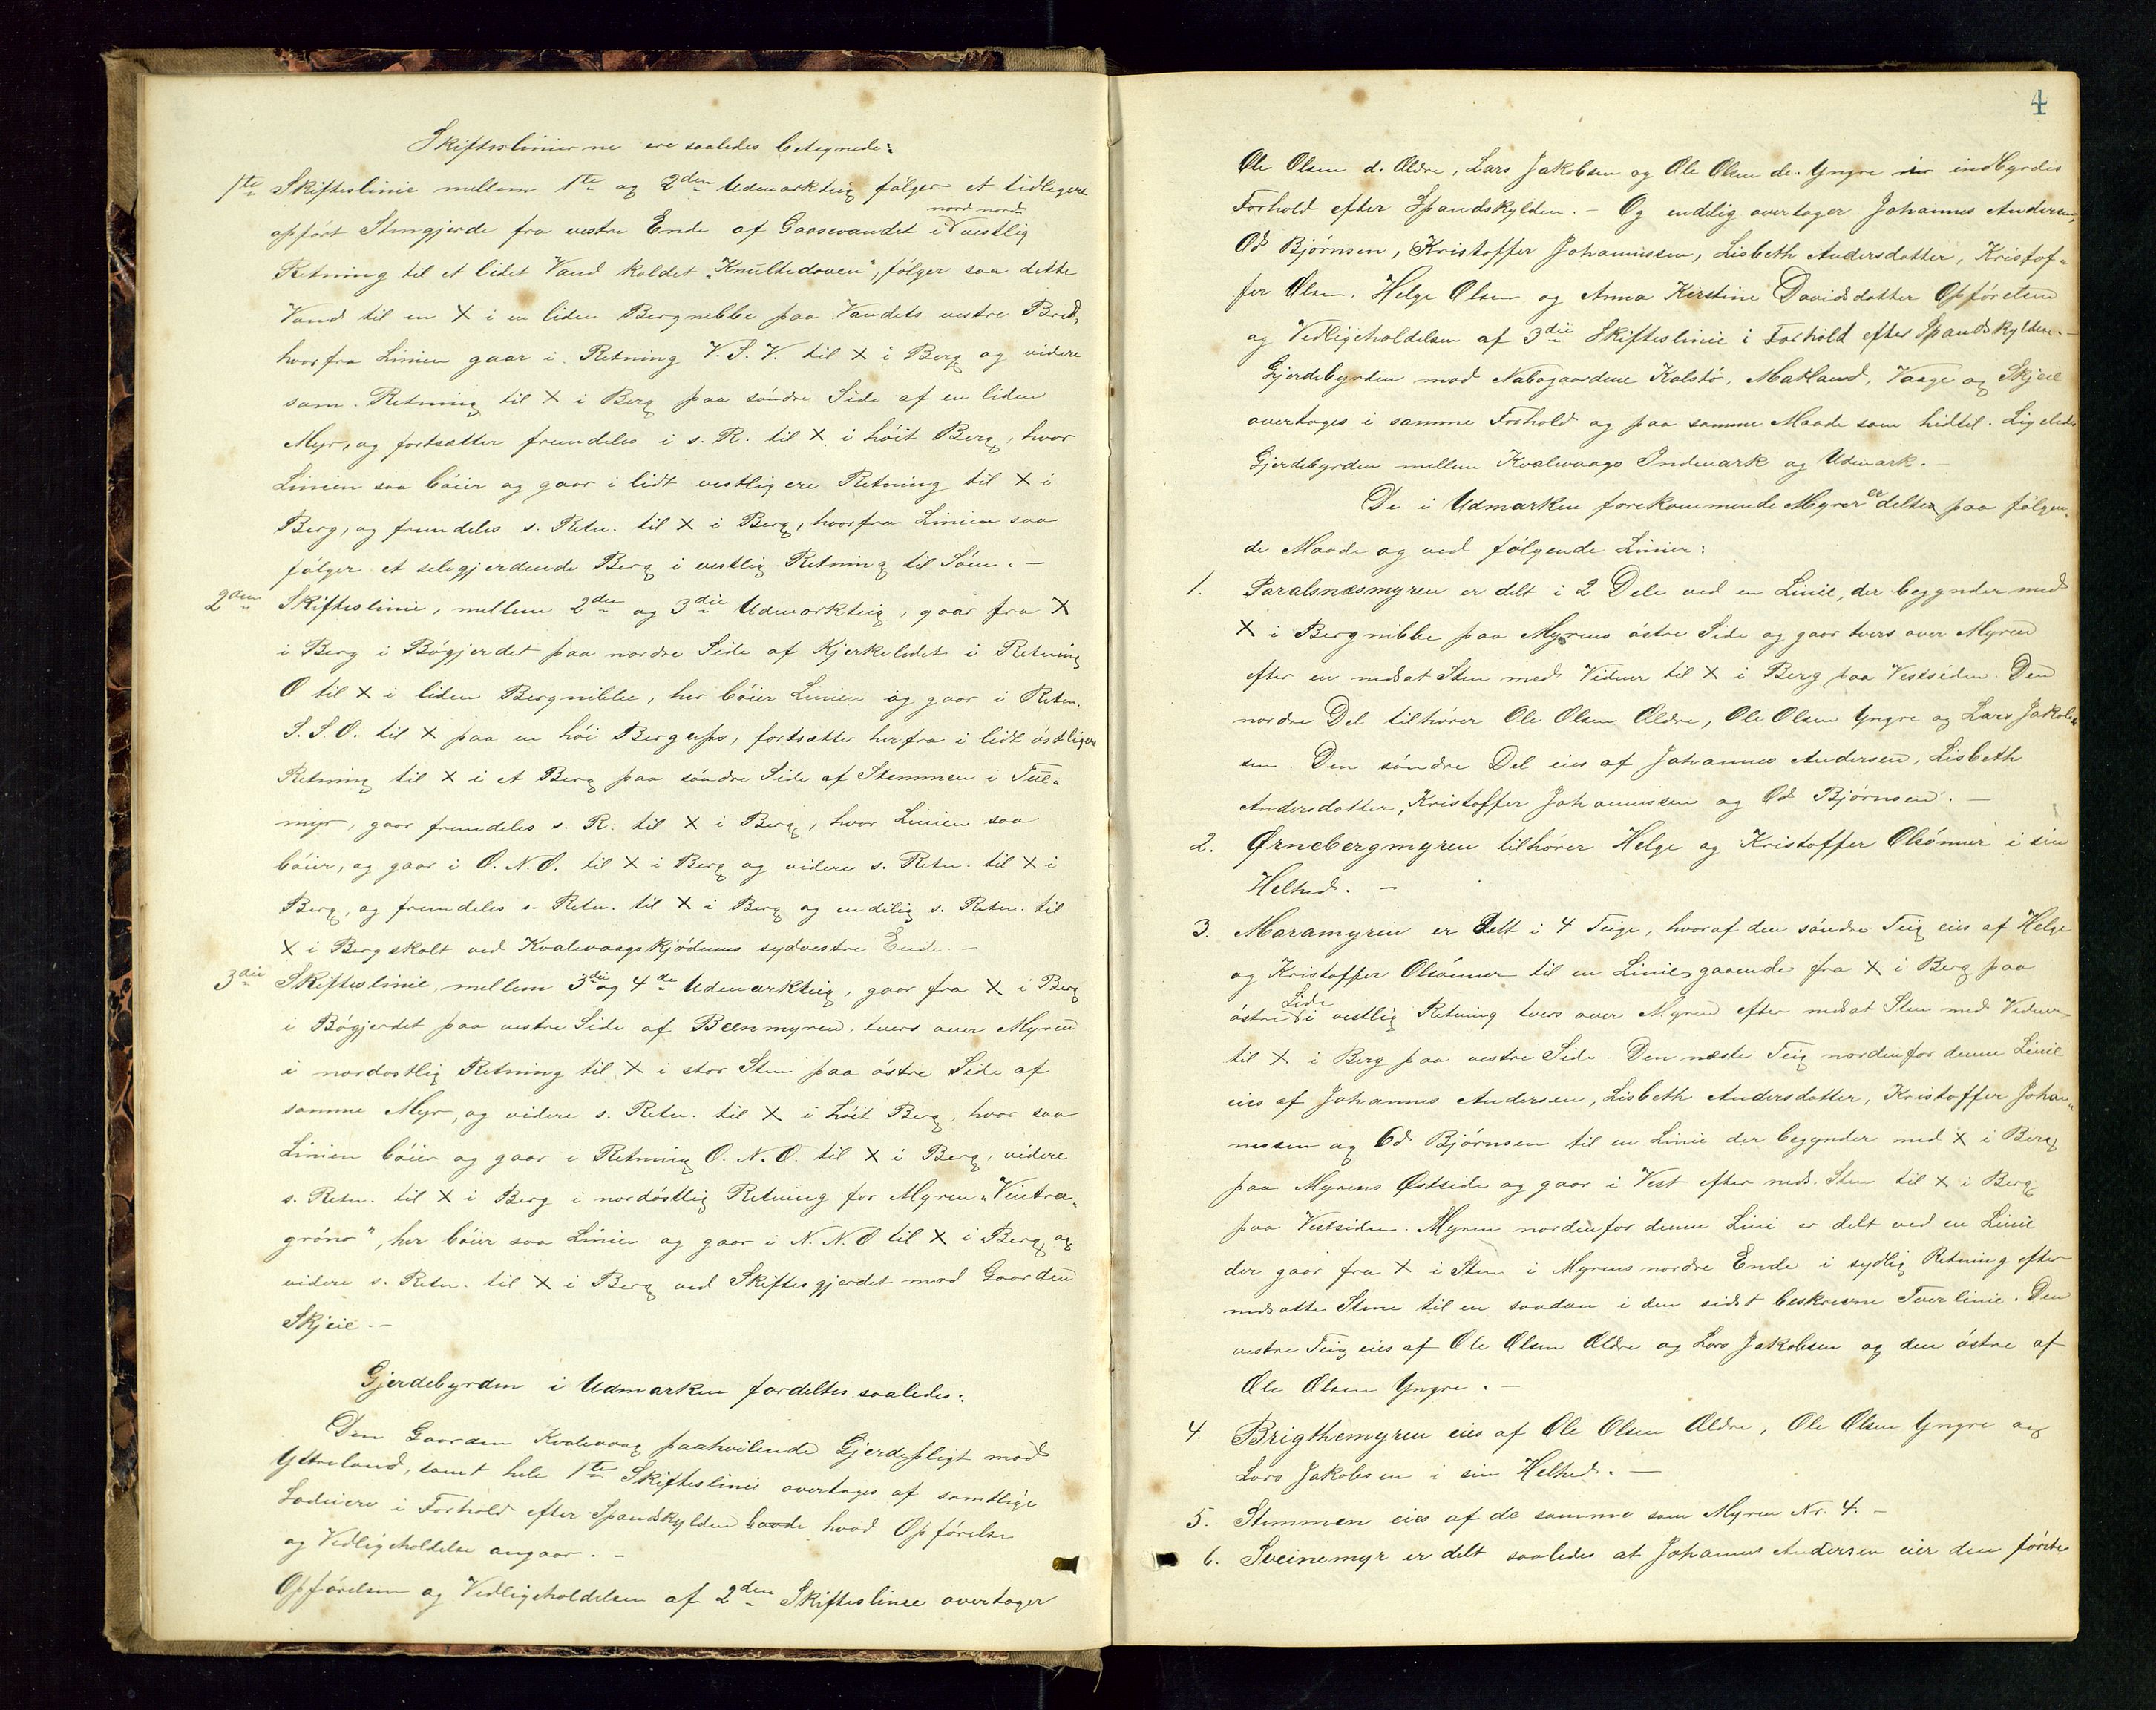 Skifteslinierne ere saaledes betegnede:
1te Skifteslinie mellem 1te og 2den Udmarkteig følger et tidligere
opført Stengjerde fra vestre Ende af Gaasevandet i nord nord vestlig
Retning til et lidet Vand kaldet "Knultedoven", følger saa dette
Vand til en X i en liden Bergnibbe paa Vandets vestre Bred,
hvorfra Linien gaar i Retning V.S.V. til X i Berg og videre
sam. Retning til X i Berg paa söndre Side af en liden
Myr, og fortsætter fremdeles i s. R. til X i höit Berg, hvor
Linien saa böier og gaar i lidt vestligere Retning til X i
Berg, og fremdeles s. Retn. til X i Berg, hvorfra Linien saa
følger et selvgjerdende Berg i vestlig Retning til Söen. —
2den Skifteslinie, mellem 2den og 3die Udmarkteig, gaar fra X
i Berg i Bögjerdet paa nordre Side af Kjerkeledet i Retning
O til X i liden Bergnibbe, her böier Linien og gaar i Retn.
S.S.O. til X paa en höi Bergups, fortsætter herfra i lidt östligere
Retning til X i et Berg paa söndre Side af Stemmen i Tuel-
myr, gaar fremdeles s. R. til X i Berg, hvor Linien saa
böier, og gaar i O.N.O. til X i Berg og videre s. Retn. til X i
Berg, og fremdeles s. Retn. til X i Berg og endelig s. Retn. til
X i Bergskolt ved Kvalevaagskjödnnes sydvestre Ende. —
3die Skifteslinie, mellem 3die og 4de Udmarkteig, gaar fra X i Berg
i Bögjerdet paa vestre Side af Beenmyren, tvers over Myren
i nordostlig Retning til X i stor Sten paa östre Side af
samme Myr, og videre s. Retn. til X i höit Berg, hvor saa
Linien böier og gaar i Retning O.N.O. til X i Berg, videre
s. Retn. til X i Berg i nordöstlig Retning for Myren "Vintra-
gröno", her böier saa Linien og gaar i N.N.O til X i Berg og
videre s. Retn. til X i Berg ved Skiftesgjerdet mod Gaarden
Skjeie. —
Gjerdebyrden i Udmarken fordeltes saaledes:
Den Gaarden Kvalevaag paahvilende Gjerdepligt mod
Yttreland, samt hele 1te Skifteslinie overtages af samtlige
Lodeiere i Forhold efter Spandskylden baade hvad Opførelse
og Vedligeholdelse angaar. —
Opførelsen og Vedligeholdelsen af 2den Skifteslinie overtager
4
Ole Olsen d. Ældre, Lars Jakobsen og Ole Olsen de. Yngre indbyrdes
Forhold efter Spandskylden. — Og endelig overtager Johannes Andersen,
Od Bjørnsen, Kristoffer Johannissen, Lisbeth Andersdatter, Kristof-
fer Olsen, Helge Olsen og Anna Kirstine Davidsdatter Opførelsen
og Vedligeholdelsen af 3die Skifteslinie i Forhold efter Spandskylden. —
Gjerdebyrden mod Nabogaardene Kalstö, Matland, Vaage og Skjeie
overtages i samme Forhold og paa samme Maade som hidtil. Ligeledes
Gjerdebyrden mellem Kvalevaags Indmark og Udmark. —
De i Udmarken forekommende Myrer er delte paa følgen-
de Maade og ved følgende Linier:
1. Paralsnæsmyren er delt i 2 Dele ved en Linie, der begynder med
X i Bergnibbe paa Myrens östre Side og gaar tvers over Myren
efter en nedsat Sten med Vidner til X i Berg paa Vestsiden. Den
nordre Del tilhører Ole Olsen Ældre, Ole Olsen Yngre og Lars Jakob-
sen. Den söndre Del eies af Johannes Andersen, Lisbeth
Andersdatter, Kristoffer Johannissen og Od Bjørnsen. —
2. Ørnebergmyren tilhører Helge og Kristoffer Olsönner i sin
Helhed. —
3. Maramyren er delt i 4 Teige, hvoraf den söndre Teig eies af Helge
og Kristoffer Olsönner til en Linie gaaende fra X i Berg paa
östre Side i vestlig Retning tvers over Myren efter nedsat Sten med Vidner
til X i Berg paa vestre Side. Den næste Teig nordenfor denne Linie
eies af Johannes Andersen, Lisbeth Andersdatter, Kristoffer Johan-
nessen og Od Bjørnsen til en Linie der begynder med X i Berg
paa Myrens Østside og gaar i Vest efter neds. Sten til X i Berg
paa Vestsiden. Myren nordenfor denne Linie er delt ved en Linie
der gaar fra X i Sten i Myrens nordre Ende i sydlig Retning efter
nedsatte Stene til en saadan i den sidst beskrevne Tverlinie. Den
vestre Teig eies af Ole Olsen Ældre og Lars Jakobsen og den östre af
Ole Olsen Yngre. —
4. Brigthemyren eies af Ole Olsen Ældre, Ole Olsen Yngre og
Lars Jakobsen i sin Helhed. —
5. Stemmen eies af de samme som Myren Nr. 4. —
6. Sveinemyr er delt saaledes at Johannes Andersen eier den første